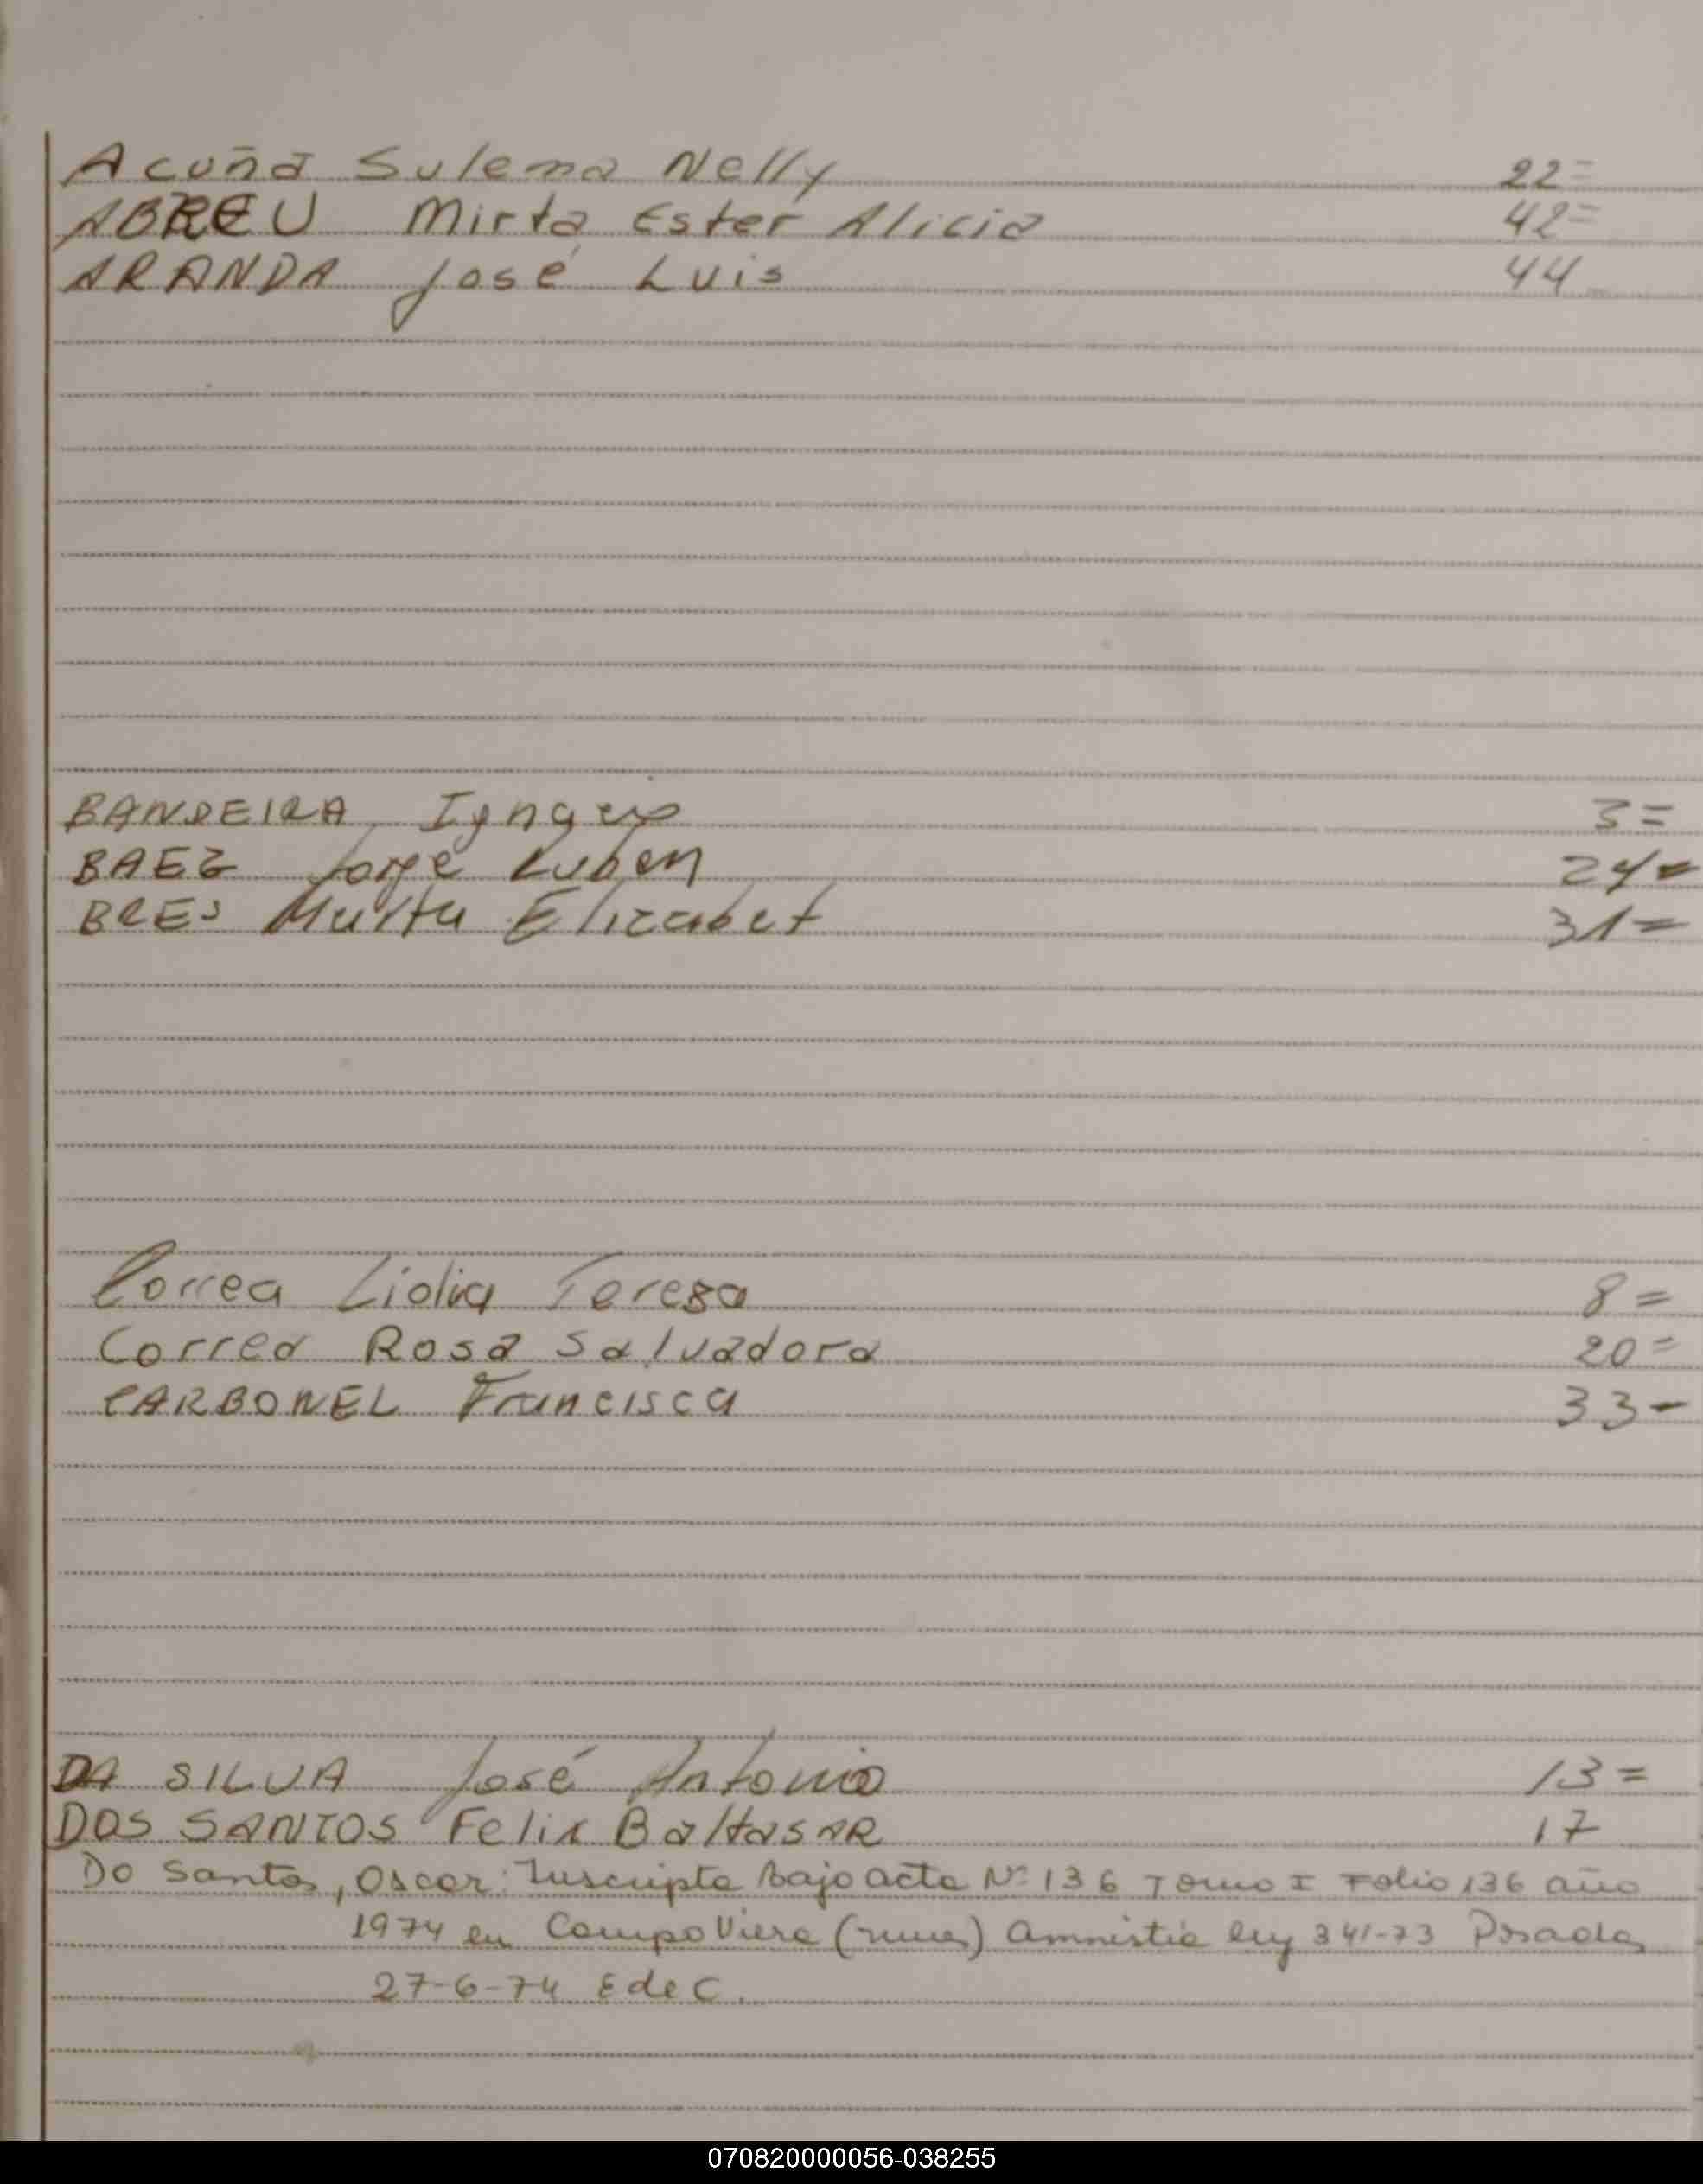 Acuña Sulema Nelly 22=
ABREU Mirta Ester Alicia 42=
ARANDA José Luis 44
BANDEIRA 3=
BAEZ Jorge Ruben 24=
BRES Marta Elizabet 31=
Correa Lidia Teresa 8=
Correa Rosa Salvadora 20=
CARBONEL Francisca 33-
DA SILVA José Antonio 13=
DOS SANTOS Felix BaltasAR 17
Do Santos, Oscar: Inscripto bajo acta Nº 136 Tomo I Folio 136 año
1974 en Campo Viera (mnes) amnistia ley 341-73 Posadas
27-6-74 E de C.
070820000056-038255